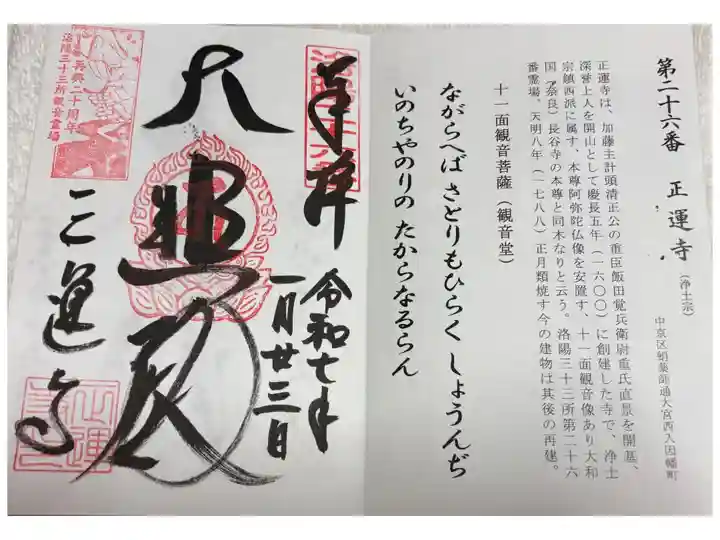 第二十六番 正運寺(浄土宗)
中京区蛸薬師通大宮西入因幡町
正運寺は、加藤主計頭清正公の重臣飯田覚兵衛尉重氏直景を開基、
深誉上人を開山として慶長五年(一六〇〇)に創建した寺で、浄土
宗鎮西派に属す、本尊阿弥陀仏像を安置す、十一面観音像あり大和
国(奈良)長谷寺の本尊と同木なりと云う。洛陽三十三所第二十六
番霊場、天明八年(一七八八)正月類焼す今の建物は其後の再建。
十一面観音菩薩(観音堂)
ながらへば さとりもひらく しょうんぢ
いのちやのりの たからなるらん
奉拝
令和七年
一月廿三日
大悲殿
正運寺
再興二十周年
洛陽三十三所観音霊場